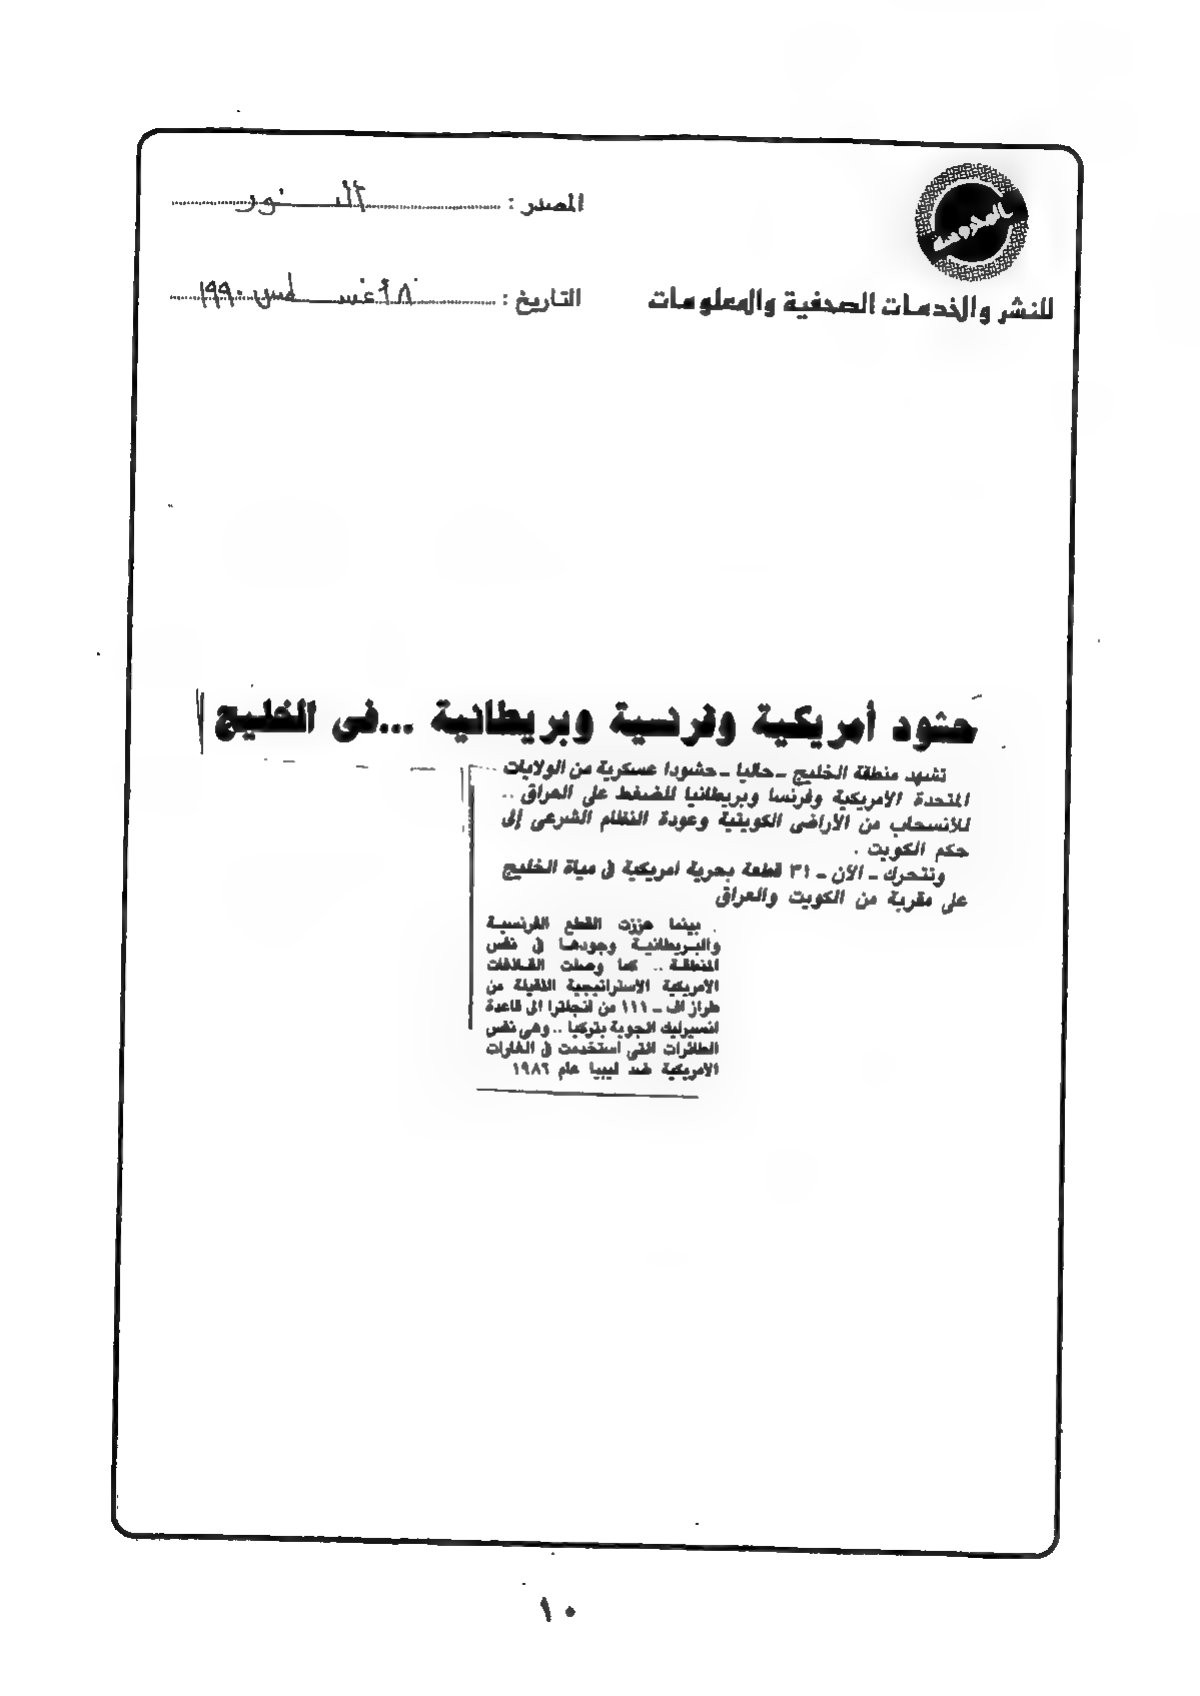 المحروسة
للنشر والخدمات الصحفية والمعلومات
المصدر : النور
التاريخ : أغسطس ١٩٩٠
حشود أمريكية وفرنسية وبريطانية ...فى الخليج
تشهد منطقة الخليج ـ حاليا ـ حشودا عسكرية من الولايات
المتحدة الأمريكية وفرنسا وبريطانيا للضغط على العراق ..
للأنسحاب من الأراضى الكويتية وعودة النظام الشرعى إلى
حكم الكويت .
وتتحرك ـ الآن ـ ٣١ قطعة بحرية امريكية فى مياة الخليج
على مقربة من الكويت والعراق
بينما عززت القطع الفرنسية
والبريطانية وجودها فى نفس
المنطقة .. كما وصلت القاذفات
الأمريكية الاستراتيجية الثقيلة من
طراز اف ـ ١١١ من انجلترا الى قاعدة
انسيرليك الجوية بتركيا .. وهى نفس
الطائرات التى استخدمت فى الغارات
الأمريكية ضد ليبيا عام ١٩٨٦
١٠